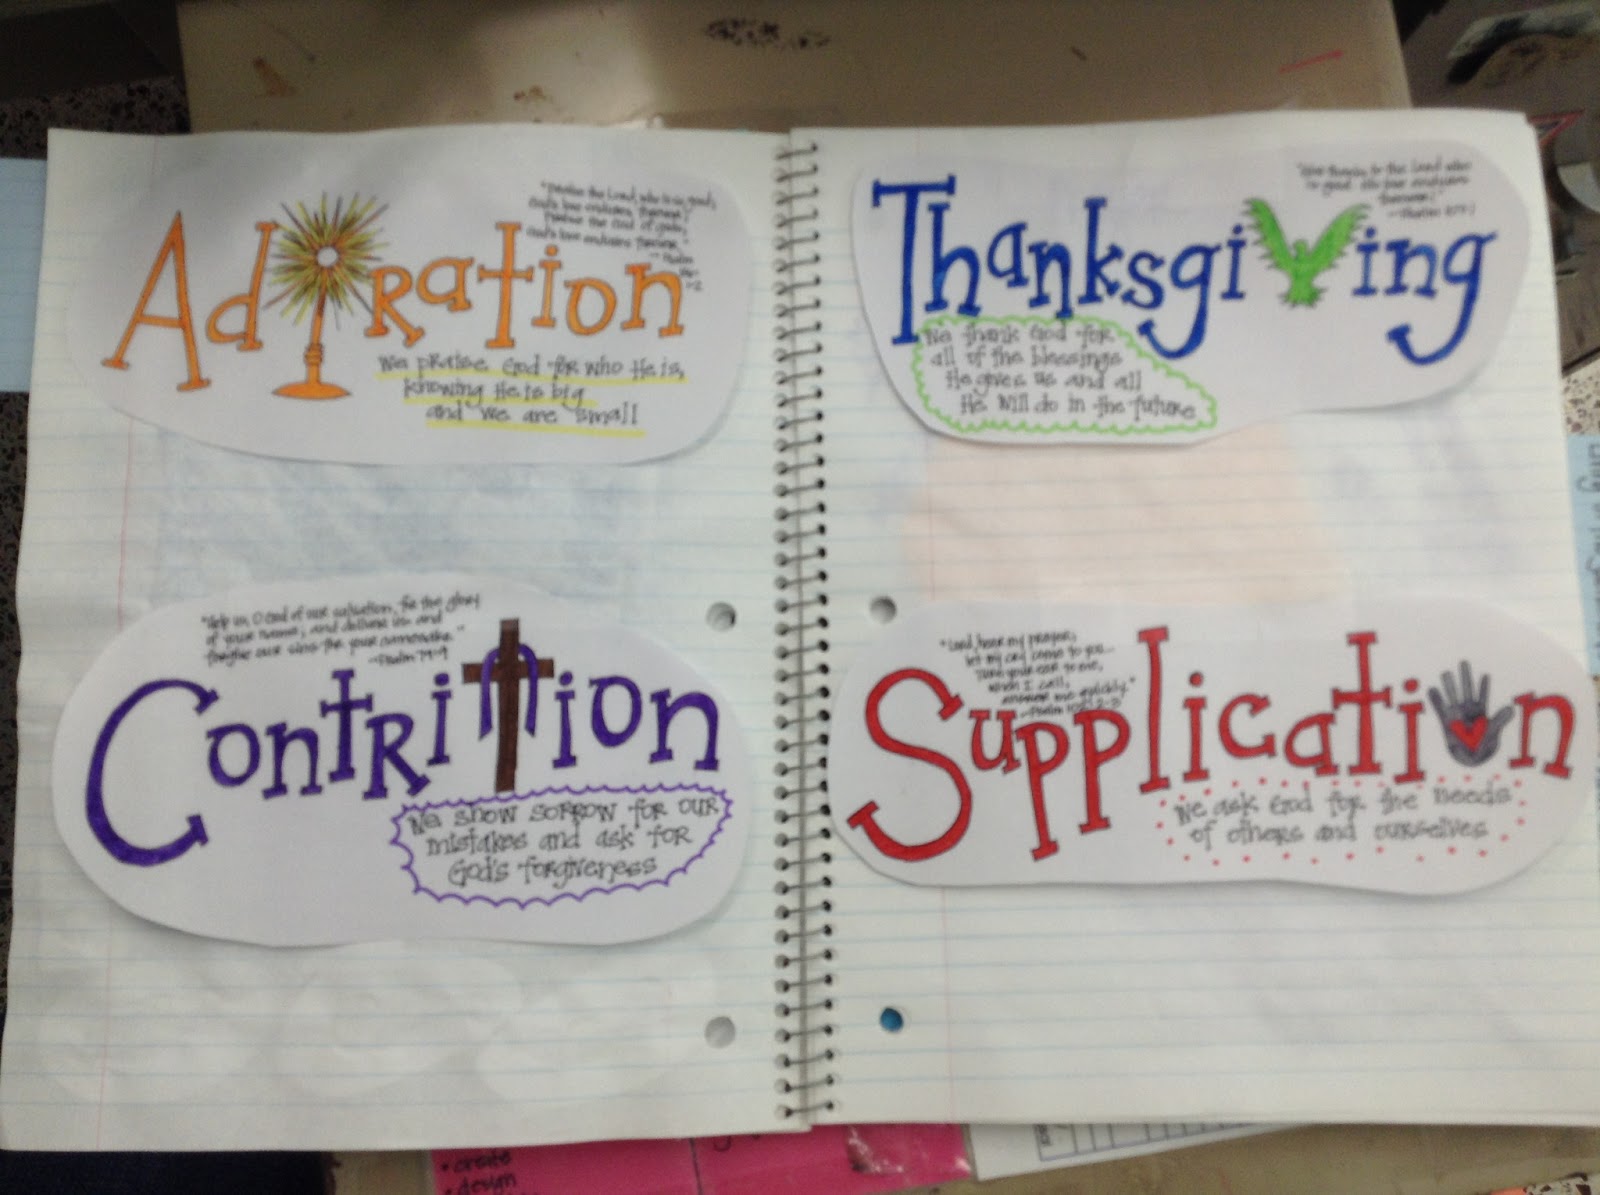 Adoration
"Praise the Lord, who is so good;
God's love endures forever;
Praise the God of gods;
God's love endures forever."
-- Psalm
1-2
We praise God for who He is,
knowing He is big
and we are small
Thanksgiving
"Give thanks to the Lord who
is good. His love endures
forever!"
--Psalm
We thank God for
all of the blessings
He gives us and all
He will do in the future
"Help us, O God of our salvation, for the glory
of your name; and deliver us and
forgive our sins for your namesake."
--Psalm 79:9
Contrition
We show sorrow for our
mistakes and ask for
God's forgiveness
"Lord, hear my prayer;
let my cry come to you...
Turn your ear to me,
when I call,
answer me quickly."
--Psalm 102: 2-3
Supplication
We ask God for the needs
of others and ourselves
• create
• design